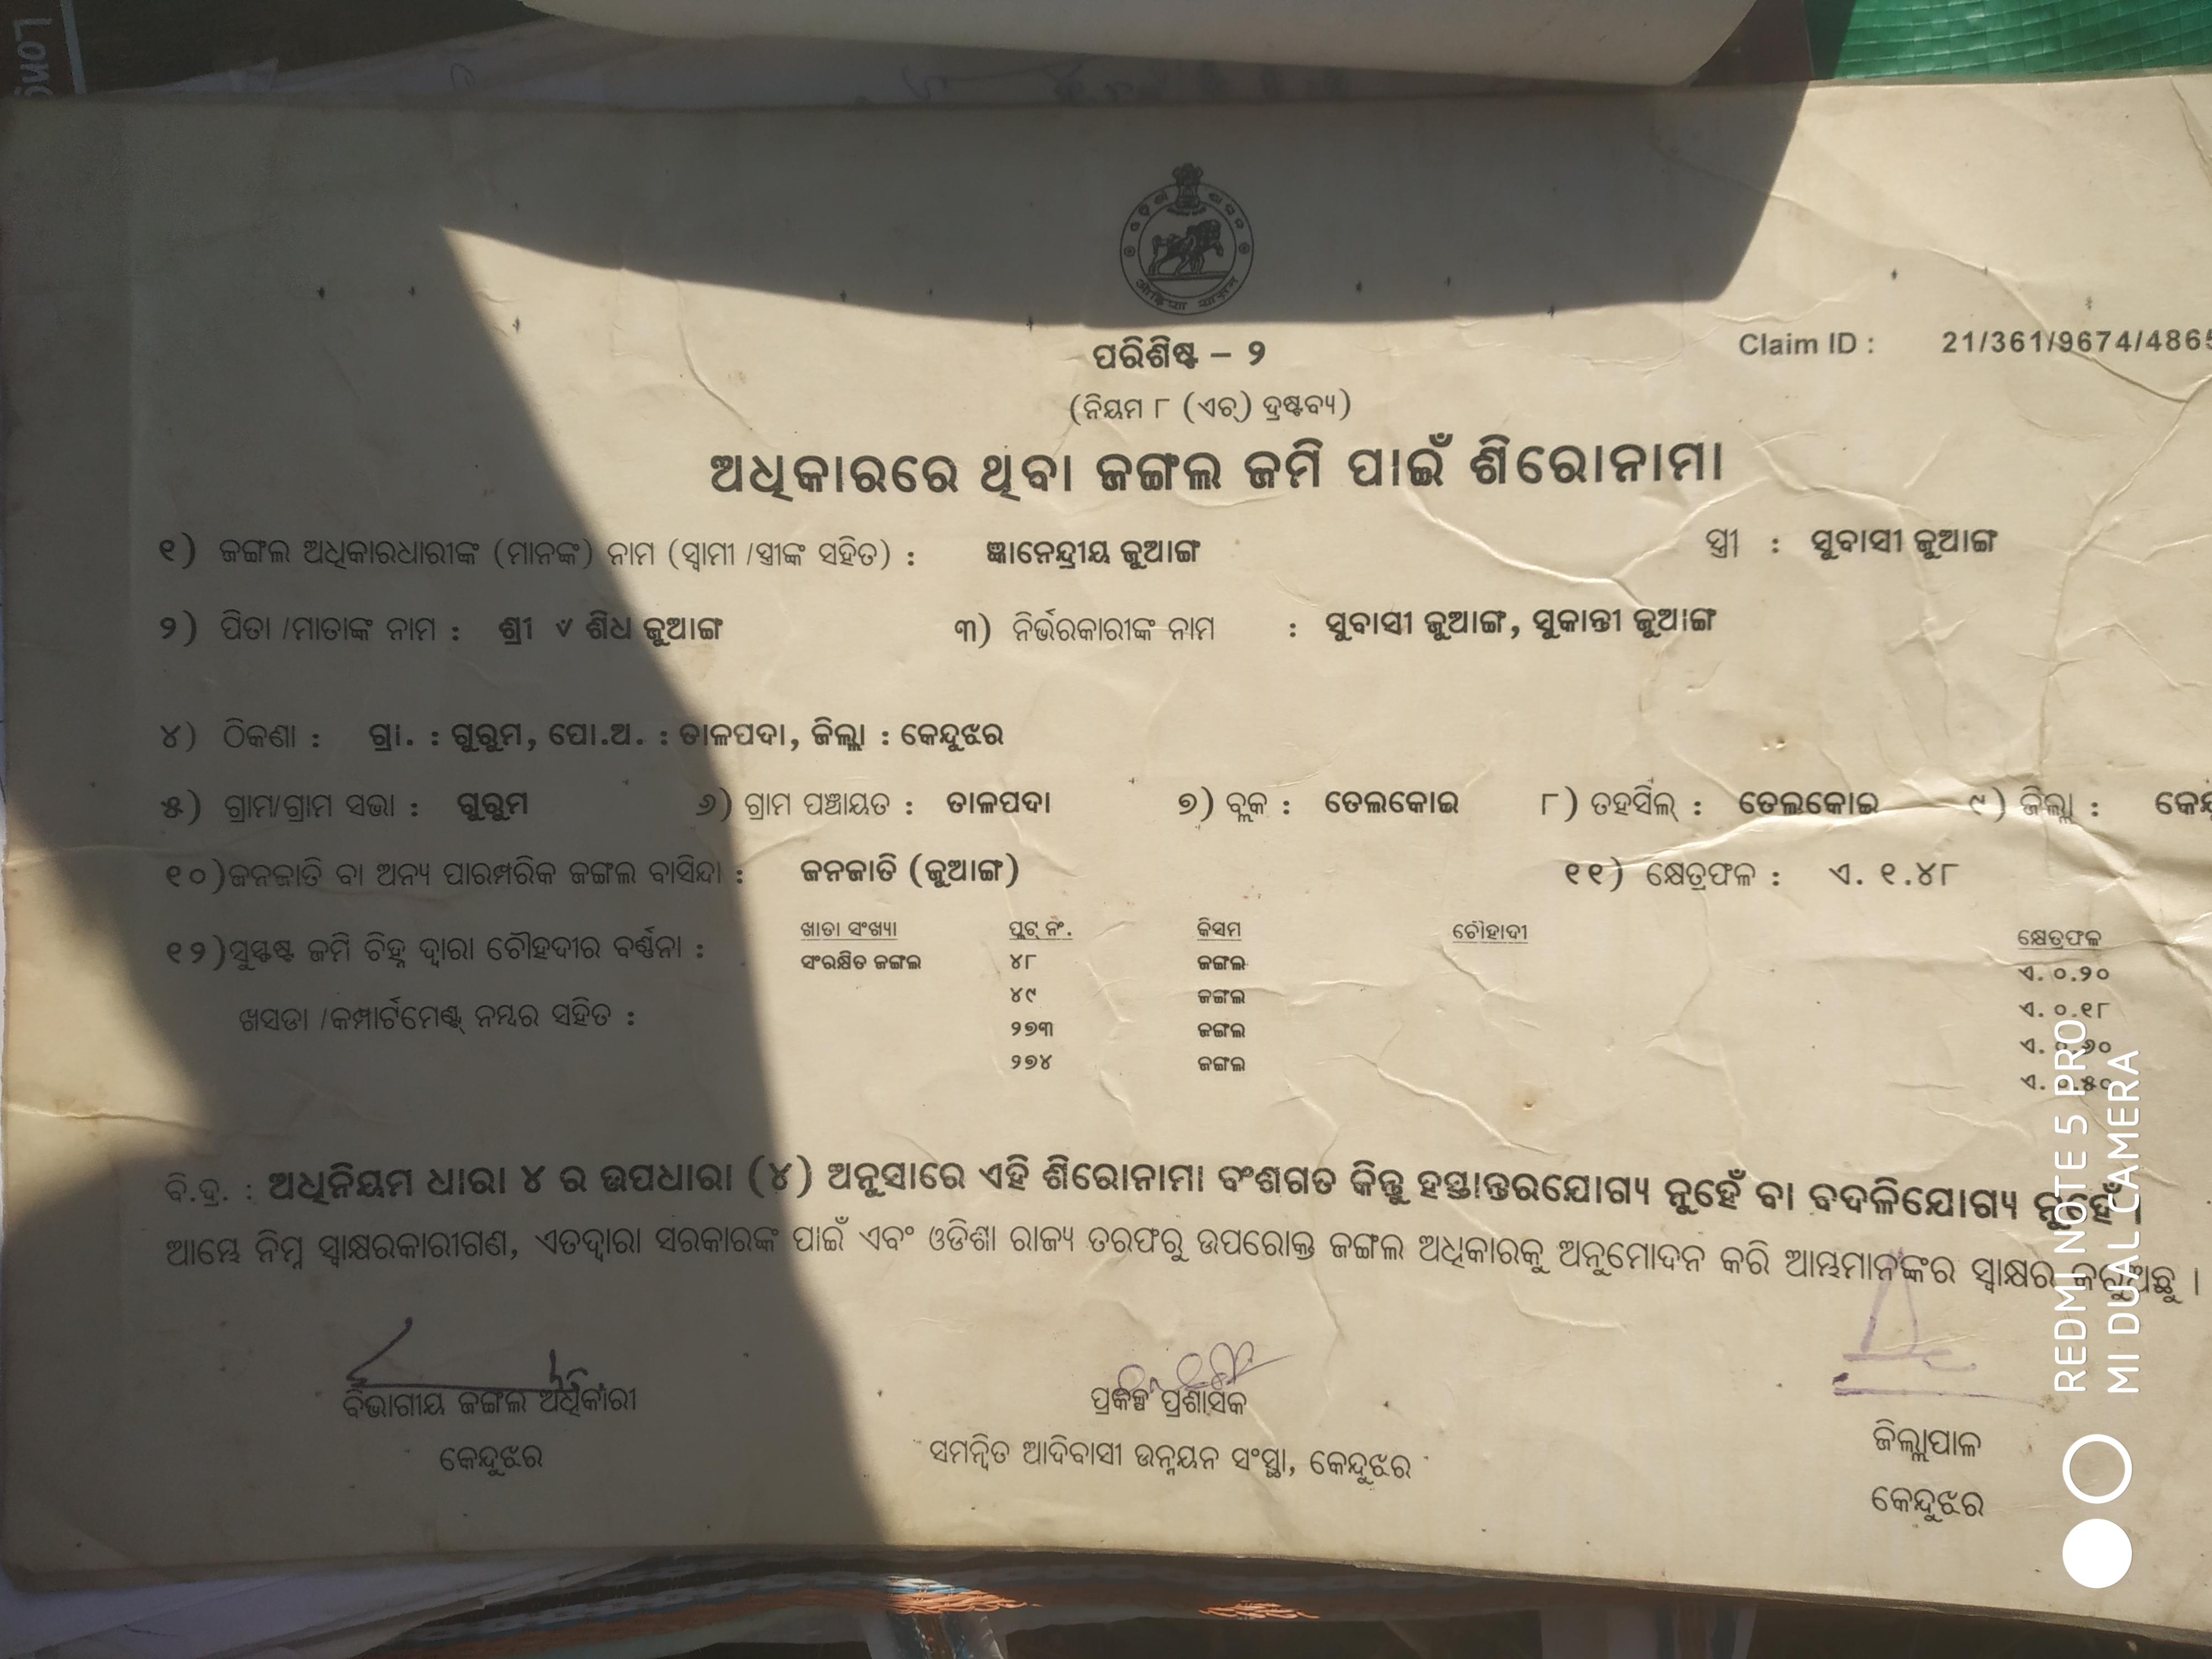 ପରିଶିଷ୍ଟ – ୨
Claim ID : 21/361/9674/4865
(ନିୟମ ୮ (ଏଚ୍) ଦ୍ରଷ୍ଟବ୍ୟ)
ଅଧିକାରରେ ଥିବା ଜଙ୍ଗଲ ଜମି ପାଇଁ ଶିରୋନାମା
୧) ଜଙ୍ଗଲ ଅଧିକାରଧାରୀଙ୍କ (ମାନଙ୍କ) ନାମ (ସ୍ୱାମୀ /ସ୍ତ୍ରୀଙ୍କ ସହିତ) : ଜ୍ଞାନେନ୍ଦ୍ରୀୟ ଜୁଆଙ୍ଗ ସ୍ତ୍ରୀ : ସୁବାସୀ ଜୁଆଙ୍ଗ
୨) ପିତା /ମାତାଙ୍କ ନାମ : ଶ୍ରୀ ୰ ଶିଧ ଜୁଆଙ୍ଗ ୩) ନିର୍ଭରକାରୀଙ୍କ ନାମ : ସୁବାସୀ ଜୁଆଙ୍ଗ, ସୁକାନ୍ତୀ ଜୁଆଙ୍ଗ
୪) ଠିକଣା : ଗ୍ରା. : ଗୁରୁମ, ପୋ.ଅ. : ତାଳପଦା, ଜିଲ୍ଲା : କେନ୍ଦୁଝର
୫) ଗ୍ରାମ/ଗ୍ରାମ ସଭା : ଗୁରୁମ ୬) ଗ୍ରାମ ପଞ୍ଚାୟତ : ତାଳପଦା ୭) ବ୍ଲକ : ତେଲକୋଇ ୮) ତହସିଲ୍ : ତେଲକୋଇ ୯) ଜିଲ୍ଲା :
୧୦)ଜନଜାତି ବା ଅନ୍ୟ ପାରମ୍ପରିକ ଜଙ୍ଗଲ ବାସିନ୍ଦା : ଜନଜାତି (ଜୁଆଙ୍ଗ) ୧୧) କ୍ଷେତ୍ରଫଳ : ଏ. ୧.୪୮
୧୨)ସୁସ୍ପଷ୍ଟ ଜମି ଚିହ୍ନ ଦ୍ୱାରା ଚୌହଦୀର ବର୍ଣ୍ଣନା : ଖାତା ସଂଖ୍ୟା ପ୍ଲଟ୍ ନଂ. କିସମ ଚୌହାଦୀ କ୍ଷେତ୍ରଫଳ
ସଂରକ୍ଷିତ ଜଙ୍ଗଲ ୪୮ ଜଙ୍ଗଲ ଏ. ୦.୨୦
୪୯ ଜଙ୍ଗଲ ଏ. ୦.୧୮
ଖସଡା /କମ୍ପାର୍ଟମେଣ୍ଟ ନମ୍ବର ସହିତ : ୨୭୩ ଜଙ୍ଗଲ ଏ. ୦.୬୦
୨୭୪ ଜଙ୍ଗଲ ଏ. ୦.୫୦
ବି.ଦ୍ର. : ଅଧିନିୟମ ଧାରା ୪ ର ଉପଧାରା (୪) ଅନୁସାରେ ଏହି ଶିରୋନାମା ବଂଶଗତ କିନ୍ତୁ ହସ୍ତାନ୍ତରଯୋଗ୍ୟ ନୁହେଁ ବା ବଦଳିଯୋଗ୍ୟ ନୁହେଁ ।
ଆମ୍ଭେ ନିମ୍ନ ସ୍ୱାକ୍ଷରକାରୀଗଣ, ଏତଦ୍ୱାରା ସରକାରଙ୍କ ପାଇଁ ଏବଂ ଓଡିଶା ରାଜ୍ୟ ତରଫରୁ ଉପରୋକ୍ତ ଜଙ୍ଗଲ ଅଧିକାରକୁ ଅନୁମୋଦନ କରି ଆମ୍ଭମାନଙ୍କର ସ୍ୱାକ୍ଷର କରୁଅଛୁ ।
ବିଭାଗୀୟ ଜଙ୍ଗଲ ଅଧିକାରୀ
କେନ୍ଦୁଝର
ପ୍ରକଳ୍ପ ପ୍ରଶାସକ
ସମନ୍ୱିତ ଆଦିବାସୀ ଉନ୍ନୟନ ସଂସ୍ଥା, କେନ୍ଦୁଝର
ଜିଲ୍ଲାପାଳ
କେନ୍ଦୁଝର
REDMI NOTE 5 PRO
MI DUAL CAMERA